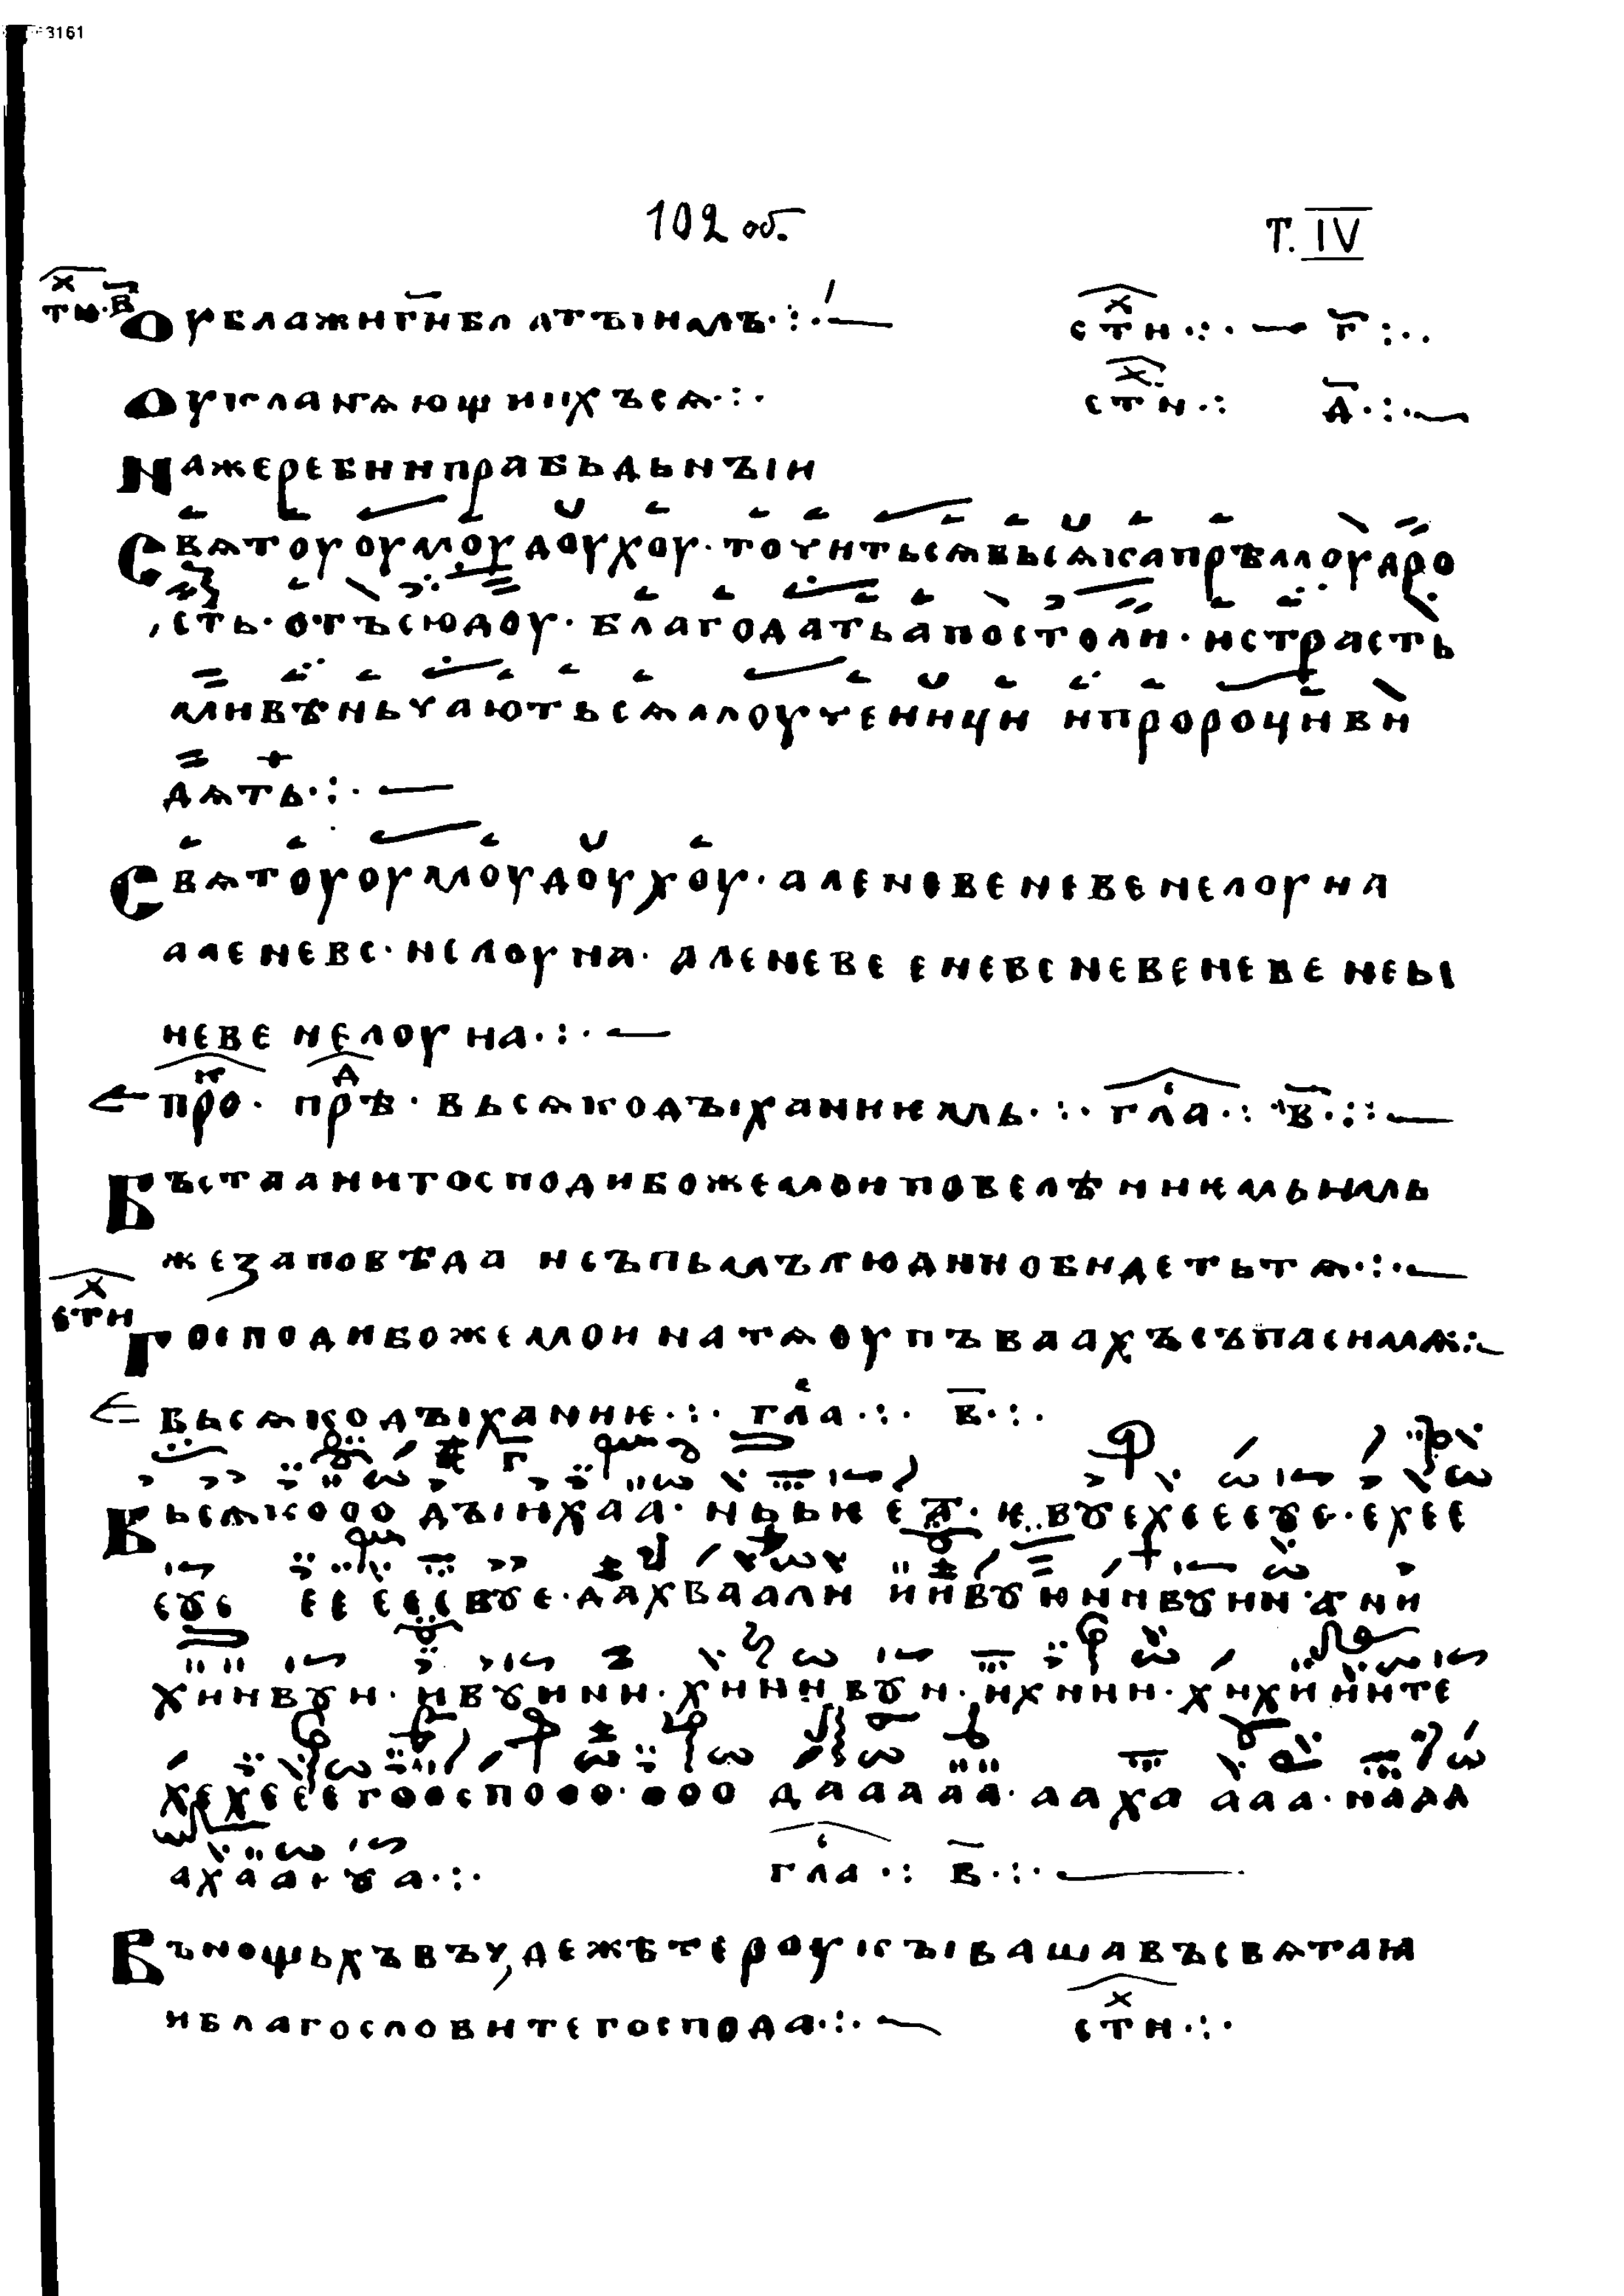 3161
102 об. Т. IV
х
ти·в оублажигиблатъıимъ·:·— стихи·:·— г:··
оукланѧющиихъсѧ·:· стихи·: д·:·—
нажеребиипрабьдьнъıи
свѧтоуоумоудоухоу·точитьсѧвьсѧкапрѣмоудро
сть·отъсюдоу·благодатьапостоли·истрасть
мивѣньчаютьсѧмоученици ипророциви
дѧть·:·—
свѧтоуоумоудоухоу·аленевеневенелоуна
аленеве·нелоуна·аленевееневеневеневенеы
невенелоуна·:·—
про· прѣ·вьсѧкодъıханиѥмь·:·гла·:·в·:·:—
въстаанигосподибожемоиповелѣниѥмьимь
жезаповѣда исъпьмълюдииобидетьтѧ·:·—
стихи
господибожемоинатѧоупъваахъсъпасимѧ·:—
вьсѧкодъıханиѥ·:· гла·:· в·:·
вьсѧкооо дъıихаа·нььи е·а·ѥвꙋехеееꙋе·ехее
еꙋе еееесвꙋе·дахваали иивꙋиниивꙋии·а·ни
хиивꙋи·ивꙋиии·хииивꙋи·ихиии·хихииите
хехеееегооспооо·ооодааааа·аахаааа·нааа
ахааꙋа·:· гла·:·в·:·—
въношьхъвъздежѣтероукъıвашавъсвѧтаꙗ
иблагословитегоспода·:·— стихи·:·